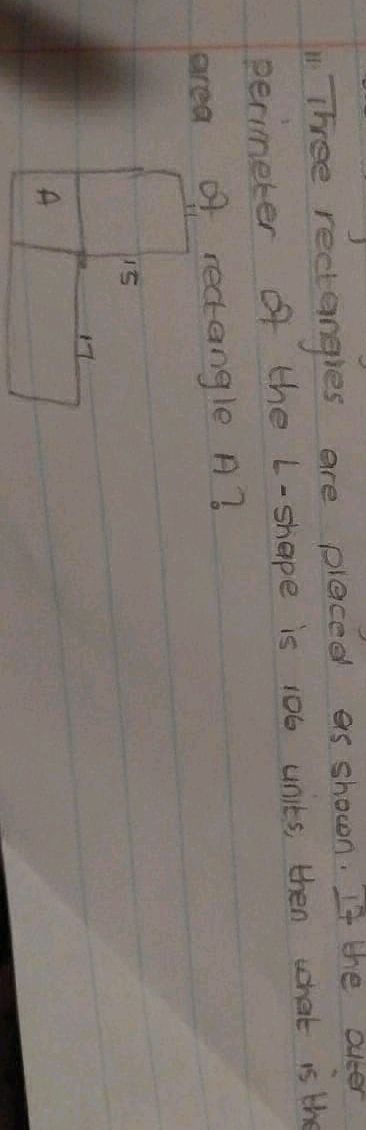 11. Three rectangles are placed as shown. If the outer
perimeter of the L-shape is 106 units, then what is the
area of rectangle A?
11
15
A
17